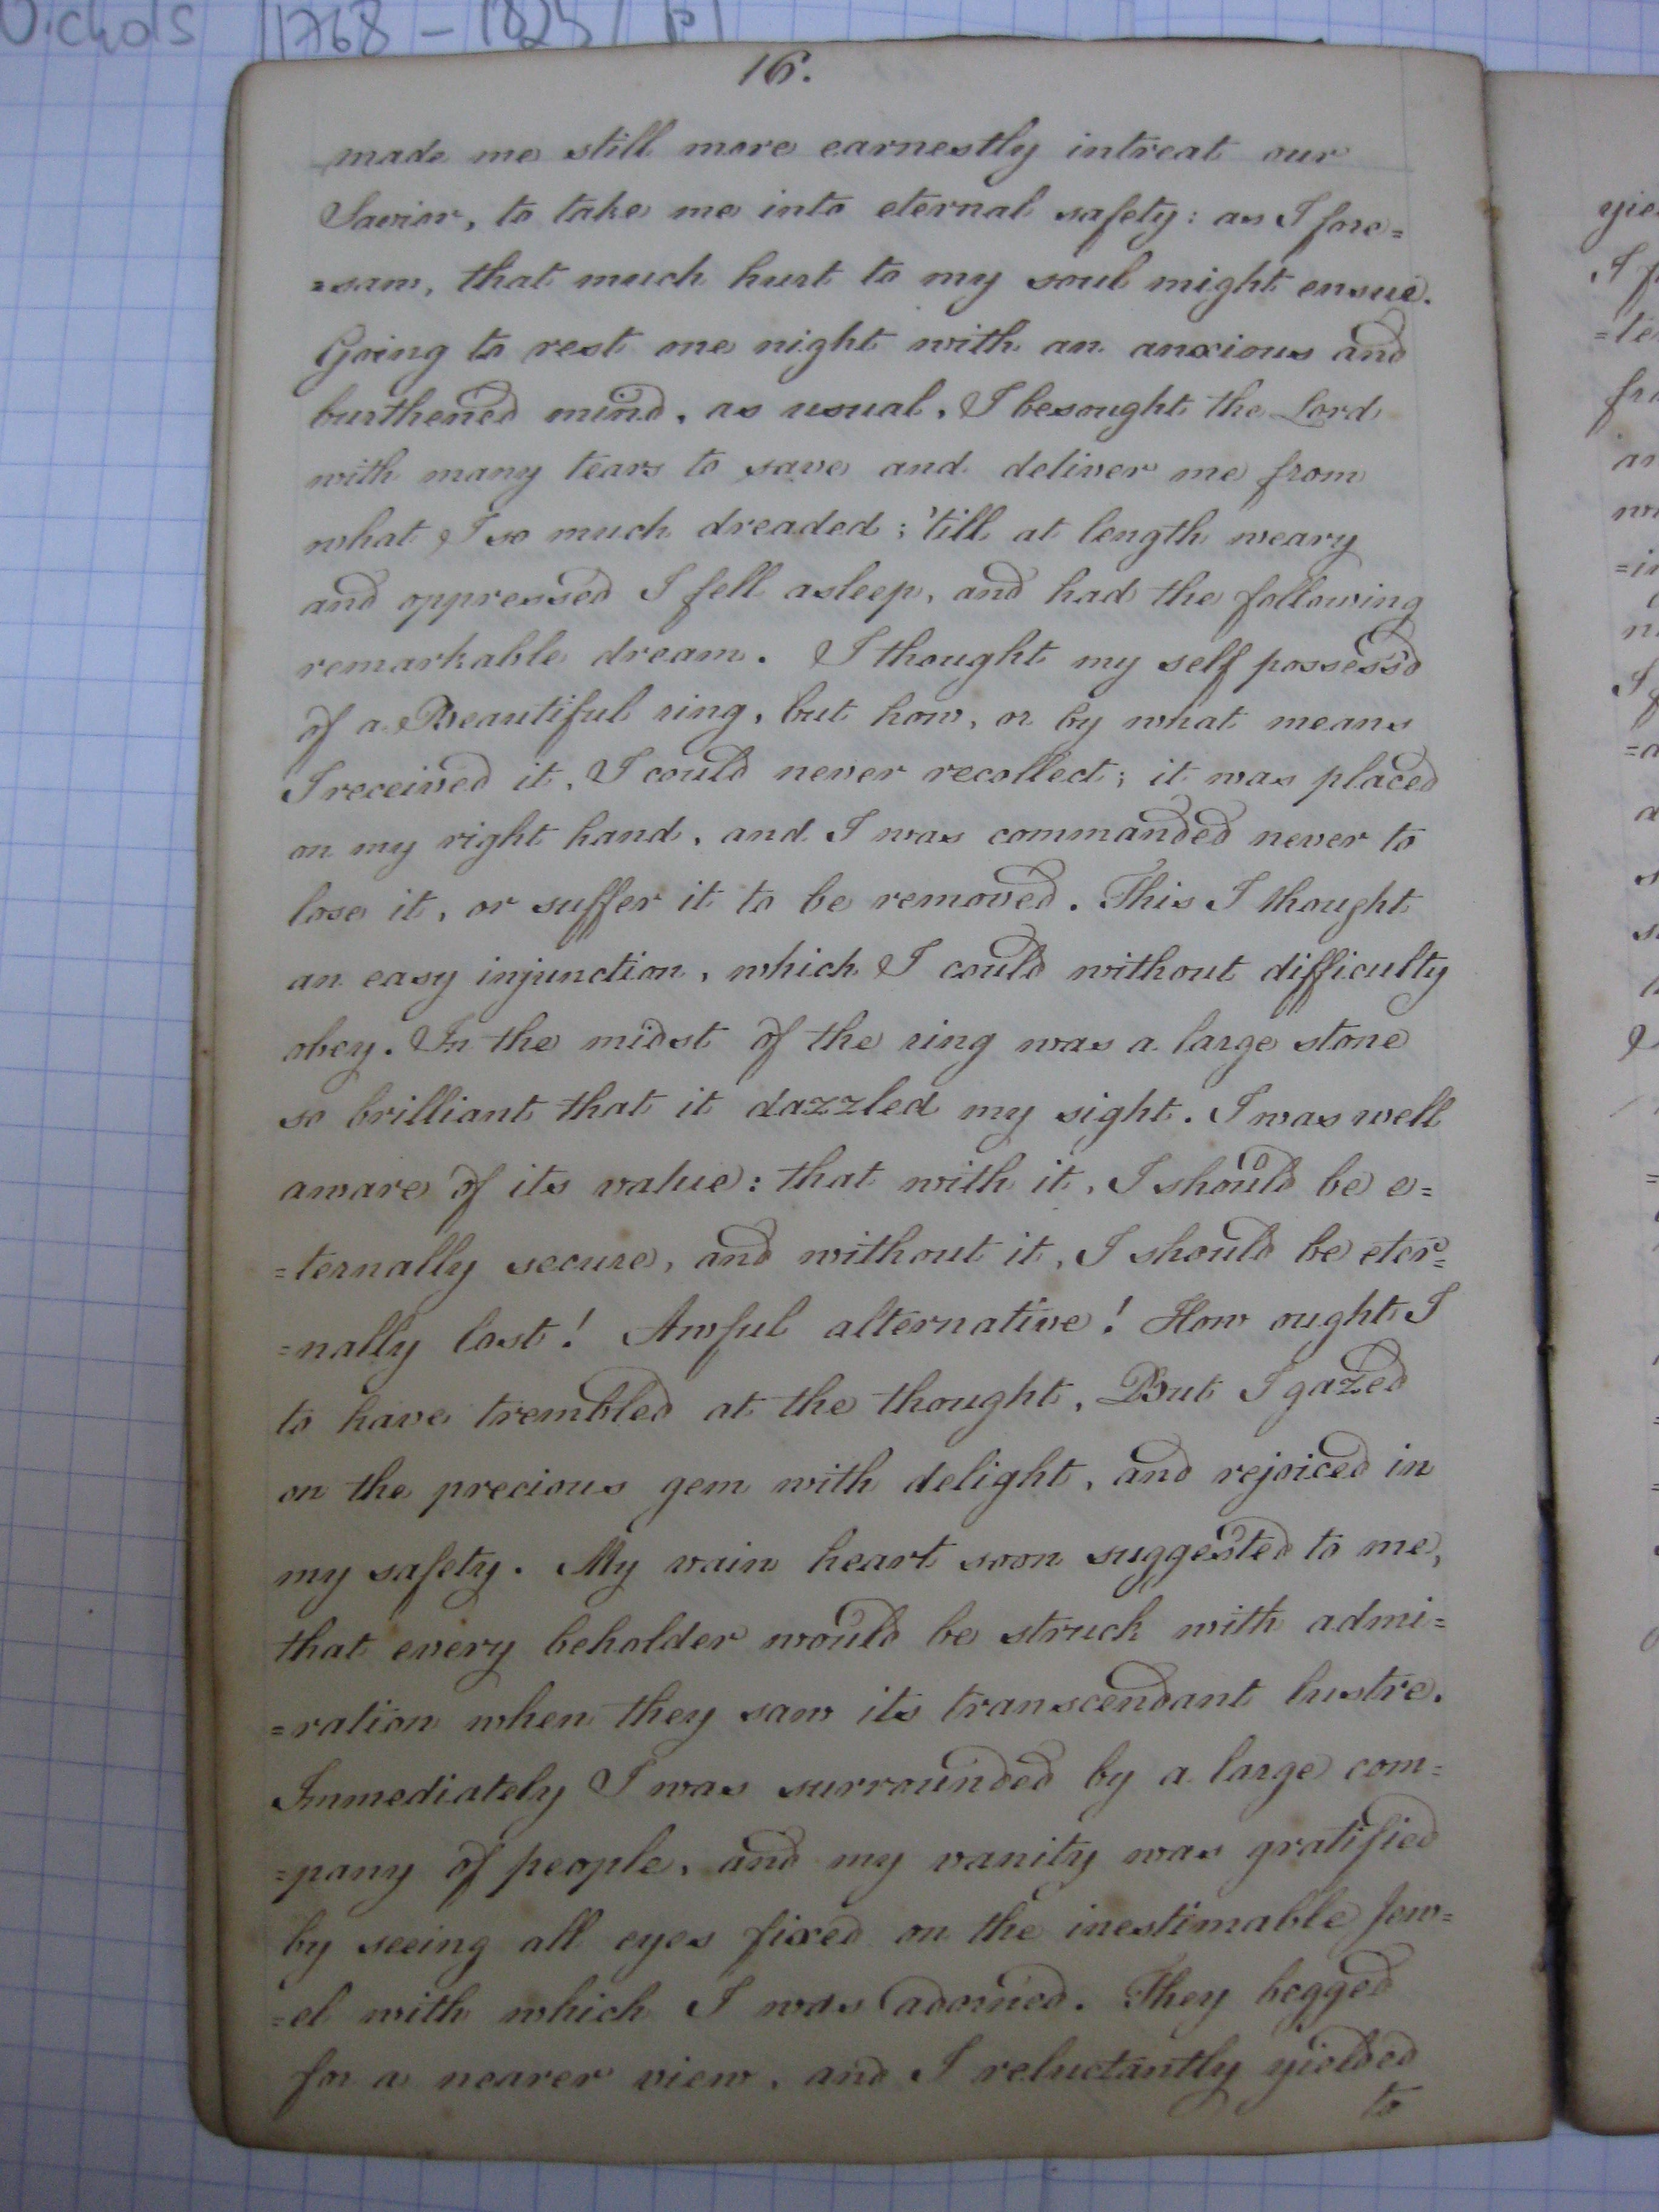 Nichols 1768 - 1825
16.
made me still more earnestly intreat our
Savior, to take me into eternal safety: as I fore=
=saw, that much hurt to my soul might ensue.
Going to rest one night with an anxious and
burthened mind, as usual, I besought the Lord
with many tears to save and deliver me from
what I so much dreaded; 'till at length weary
and oppressed I fell asleep, and had the following
remarkable dream. I thought my self possess'd
of a Beautiful ring, but how, or by what means
I received it, I could never recollect; it was placed
on my right hand, and I was commanded never to
lose it, or suffer it to be removed. This I thought
an easy injunction, which I could without difficulty
obey. In the midst of the ring was a large stone
so brilliant that it dazzled my sight. I was well
aware of its value: that with it, I should be e=
=ternally secure, and without it, I should be eter=
=nally lost! Awful alternative! How ought I
to have trembled at the thought, But I gazed
on the precious gem with delight, and rejoiced in
my safety. My vain heart soon suggested to me,
that every beholder would be struck with admi=
=ration when they saw its transcendant lustre.
Immediately I was surrounded by a large com=
=pany of people, and my vanity was gratified
by seeing all eyes fixed on the inestimable Jew=
=el with which I was adorned. They begged
for a nearer view, and I reluctantly yielded
to